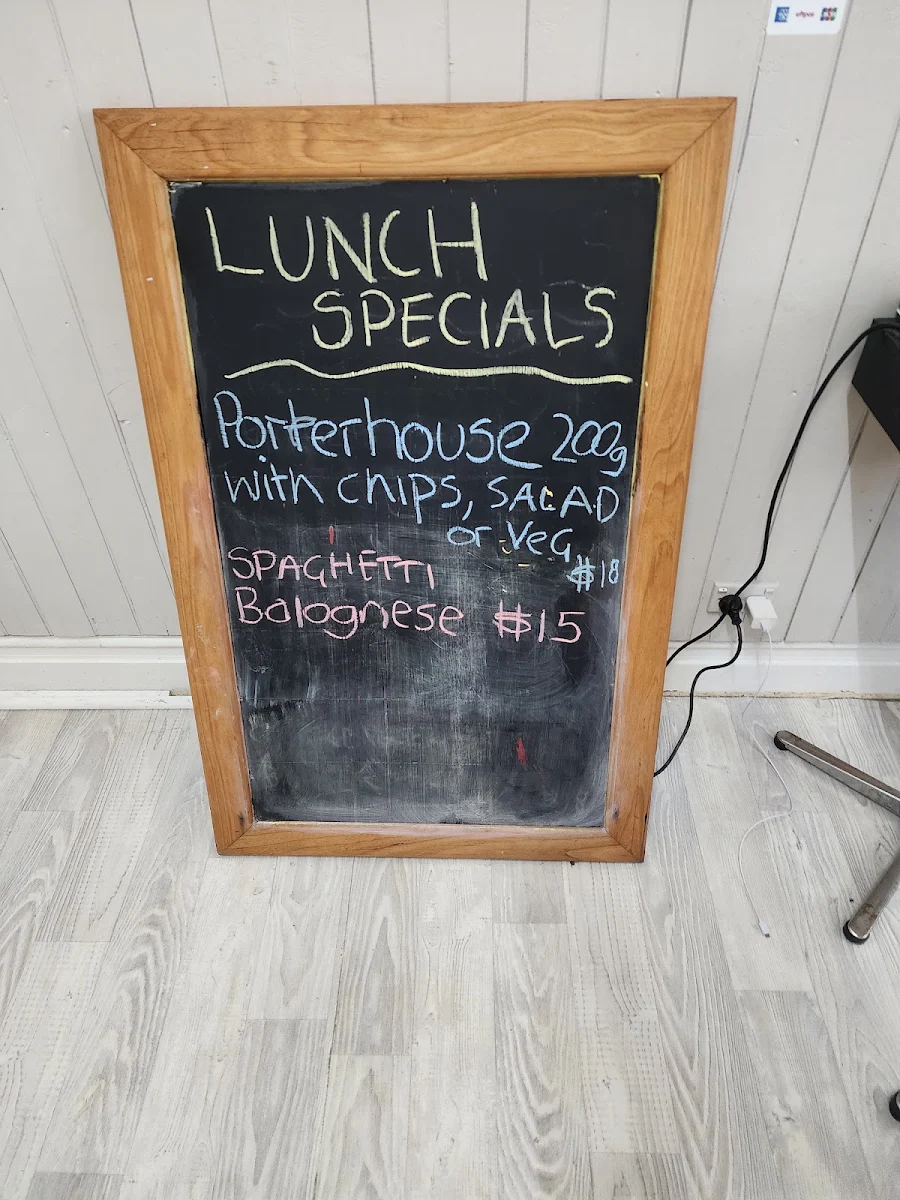 eftpos
LUNCH
SPECIALS
Porterhouse 200g
with chips, SALAD
or VeG
$18
SPAGHETTI
Bolognese $15